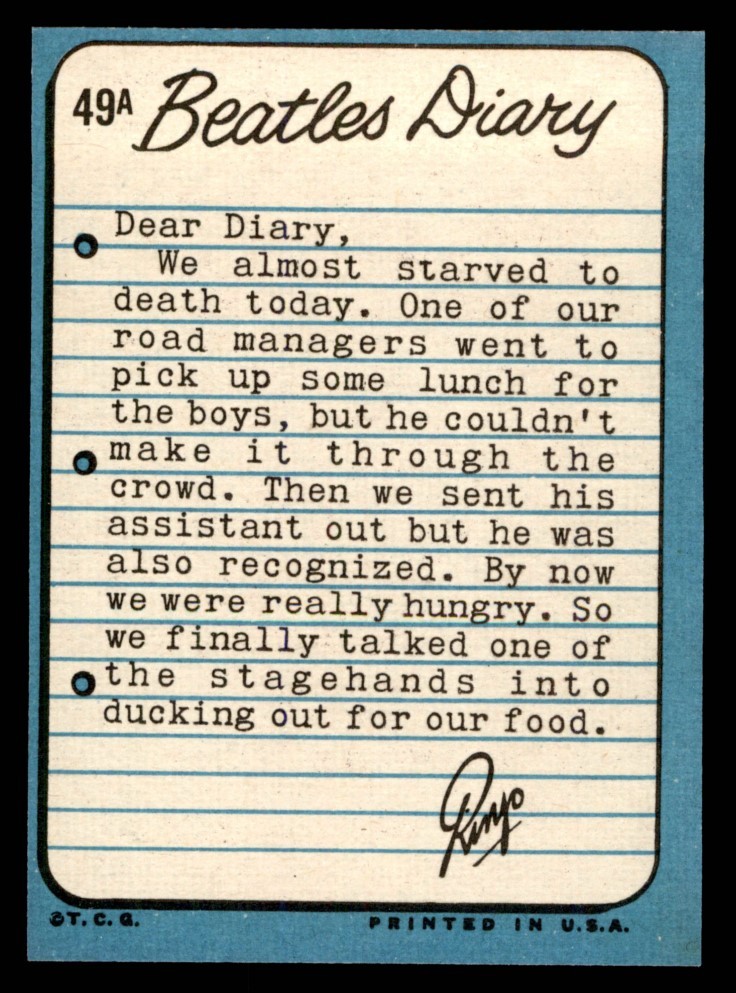 49A Beatles Diary
Dear Diary,
We almost starved to
death today. One of our
road managers went to
pick up some lunch for
the boys, but he couldn't
make it through the
crowd. Then we sent his
assistant out but he was
also recognized. By now
we were really hungry. So
we finally talked one of
the stagehands into
ducking out for our food.
Ringo
©T.C.G. PRINTED IN U.S.A.